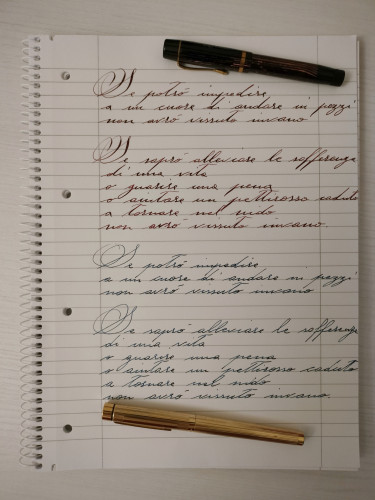 Se potrò impedire
a un cuore di andare in pezzi
non avrò vissuto invano
Se saprò alleviare le sofferenze
di una vita
o guarire una pena
o aiutare un pettirosso caduto
a tornare nel nido
non avrò vissuto invano.
Se potrò impedire
a un cuore di andare in pezzi
non avrò vissuto invano
Se saprò alleviare le sofferenze
di una vita
o guarire una pena
o aiutare un pettirosso caduto
a tornare nel nido
non avrò vissuto invano.